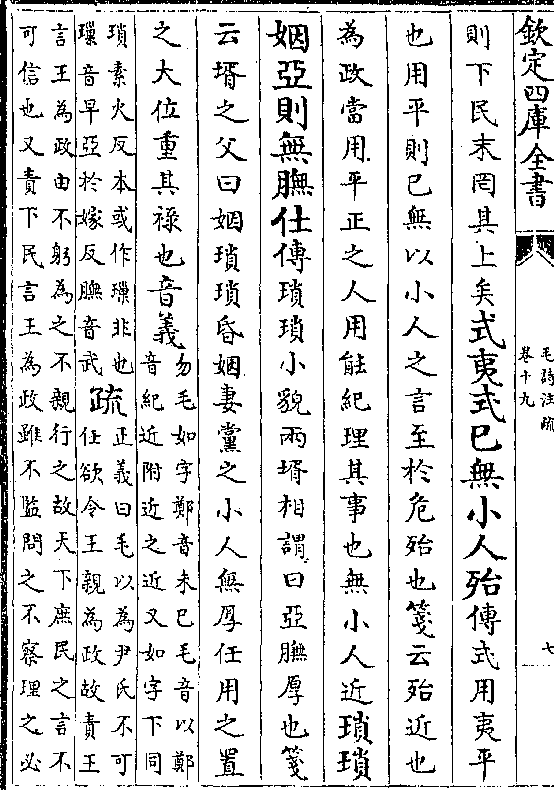 欽定四庫全書
毛詩注疏
卷十九
七
則下民末罔其上矣式夷式已無小人殆傳式用夷平
也用平則已無以小人之言至於危殆也箋云殆近也
為政當用平正之人用能紀理其事也無小人近瑣瑣
姻亞則無膴仕傳瑣瑣小貌兩壻相謂曰亞膴厚也箋
云壻之父曰姻瑣瑣昏姻妻黨之小人無厚任用之置
之大位重其祿也音義
勿毛如字鄭音末已毛音以鄭
音紀近附近之近又如字下同
瑣素火反本或作璅非也
璅音早亞於嫁反膴音武
疏
正義曰毛以為尹氏不可
任欲令王親為政故責王
言王為政由不躬為之不親行之故天下庶民之言不
可信也又責下民言王為政雖不監問之不察理之必